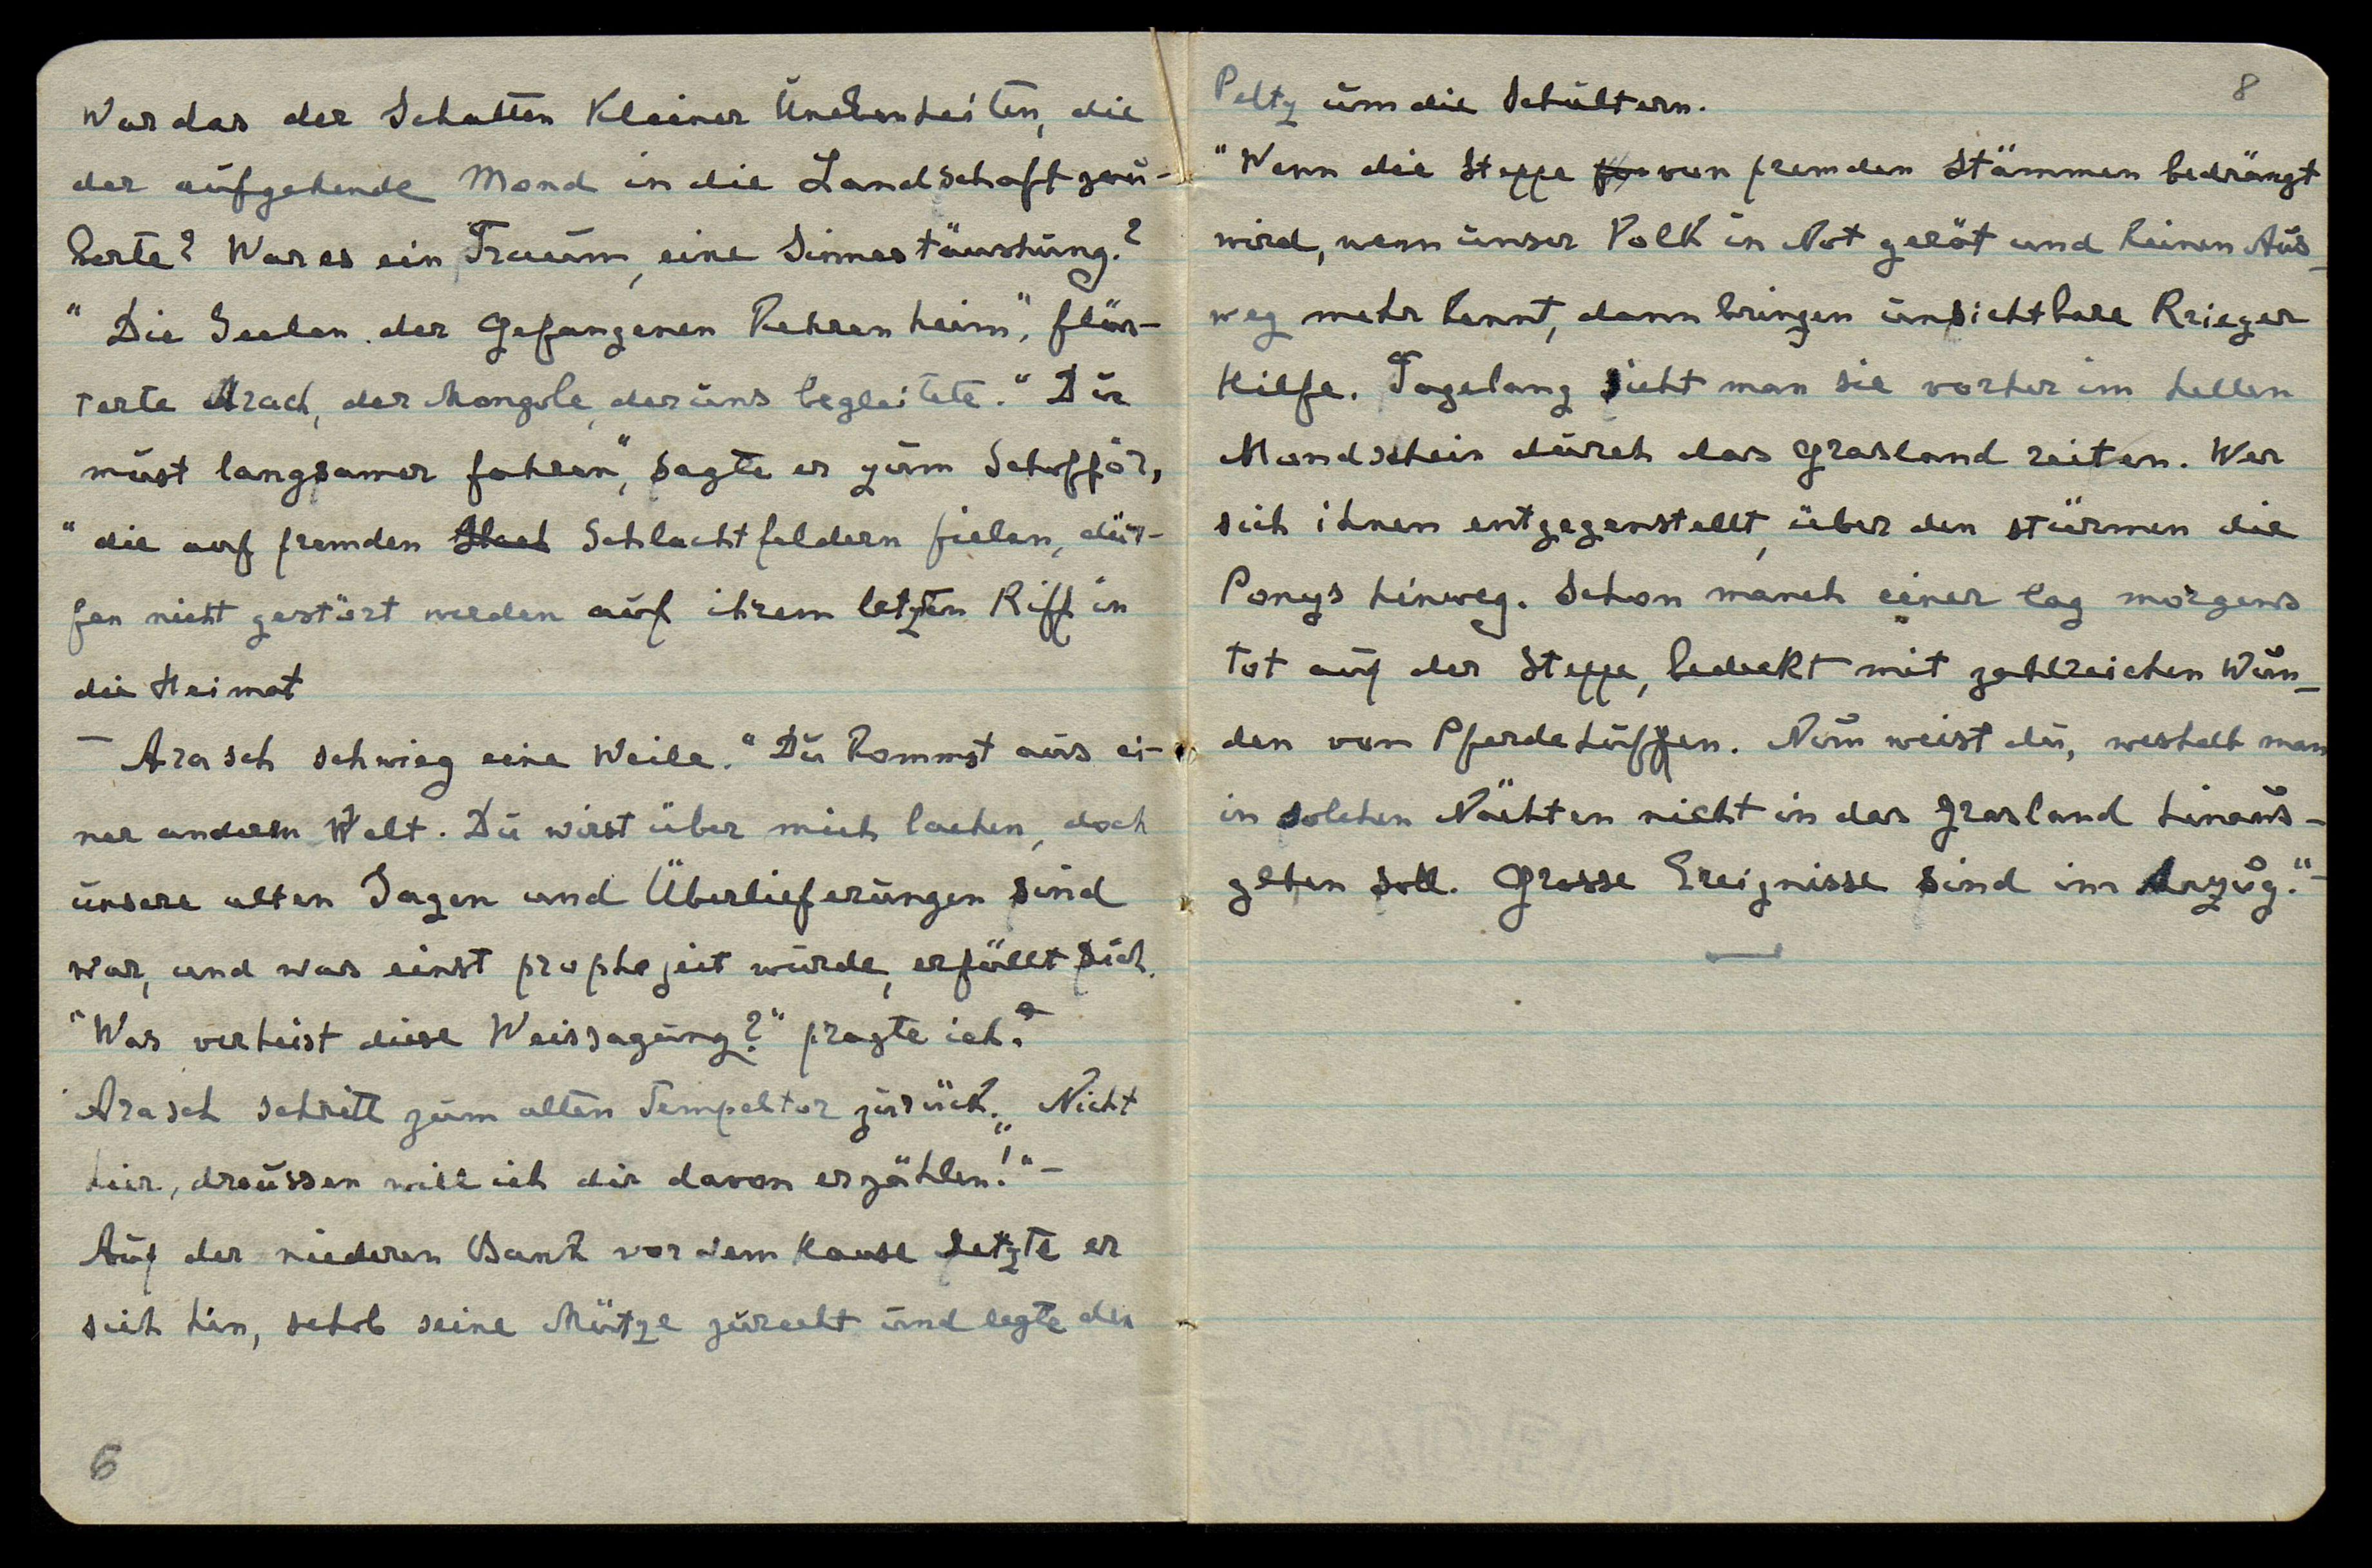 War das der Schatten kleiner Unebenheiten, die
der aufgehende Mond in die Landschaft zau-
berte? War es ein Traum, eine Sinnestäuschung?
"Die Seelen der Gefangenen kehren heim", flüs-
terte Arach, der Mongole, der uns begleitete. "Du
must langsamer fahren", sagte er zum Schofför,
"die auf fremden Schlachtfeldern fielen, dür-
fen nicht gestört werden auf ihrem letzten Riff in
die Heimat
– Arasch schwieg eine Weile. "Du kommst aus ei-
ner andern Welt. Du wirst über mich lachen, doch
unsere alten Sagen und Überlieferungen sind
war, und was einst prophezeit wurde, erfüllt sich.
"Was verheist diese Weissagung?" fragte ich.
Arasch schritt zum alten Tempeltor zurück. "Nicht
hier, draussen will ich dir davon erzählen!" –
Auf der niederen Bank vor dem Hause setzte er
sich hin, schob seine Mütze zurecht und legte den
6
8
Peltz um die Schultern.
"Wenn die Steppe von fremden Stämmen bedrängt
wird, wenn unser Volk in Not gerät und keinen Aus-
weg mehr kennt, dann bringen unsichtbare Krieger
Hilfe. Tagelang sieht man sie vorher im hellen
Mondschein durch das Grasland reiten. Wer
sich ihnen entgegenstellt, über den stürmen die
Ponys hinweg. Schon manch einer lag morgens
tot auf der Steppe, bedeckt mit zahlreichen Wun-
den von Pferdehuffen. Nun weist du, weshalb man
in solchen Nächten nicht in das Grasland hinaus-
gehen soll. Grosse Ereignisse sind im Anzug." –